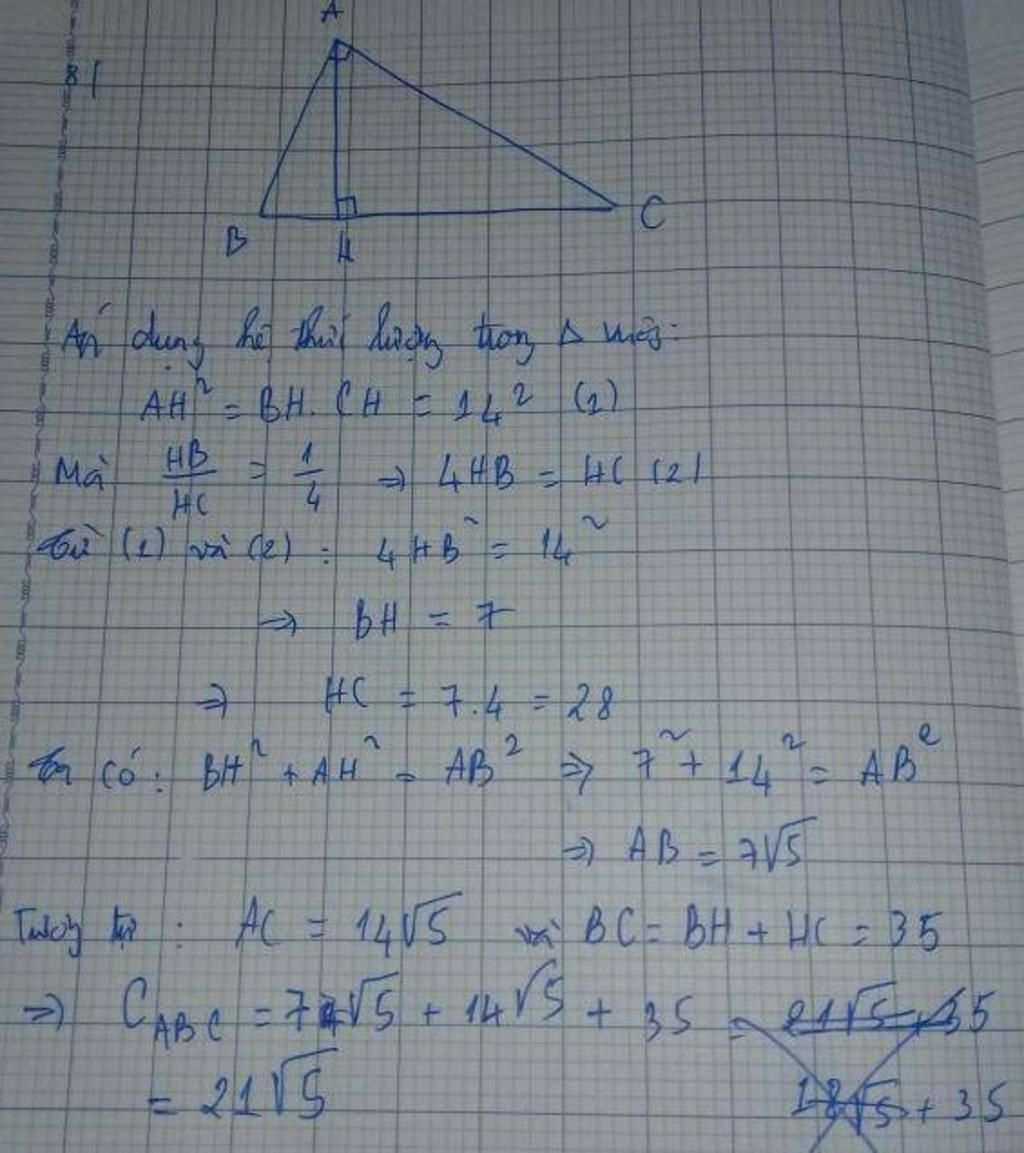 A
8 |
B H C
Áp dụng hệ thức lượng trong Δ vuông:
AH² = BH. CH = 14² (1)
Mà HB/HC = 1/4 ⇒ 4HB = HC (2)
Từ (1) và (2) : 4HB² = 14²
⇒ BH = 7
⇒ HC = 7.4 = 28
Ta có: BH² + AH² = AB² ⇒ 7² + 14² = AB²
⇒ AB = 7√5
Tương tự : AC = 14√5 và BC = BH + HC = 35
⇒ C_ABC = 7√5 + 14√5 + 35 = 21√5 + 35
= 21√5 18√5 + 35